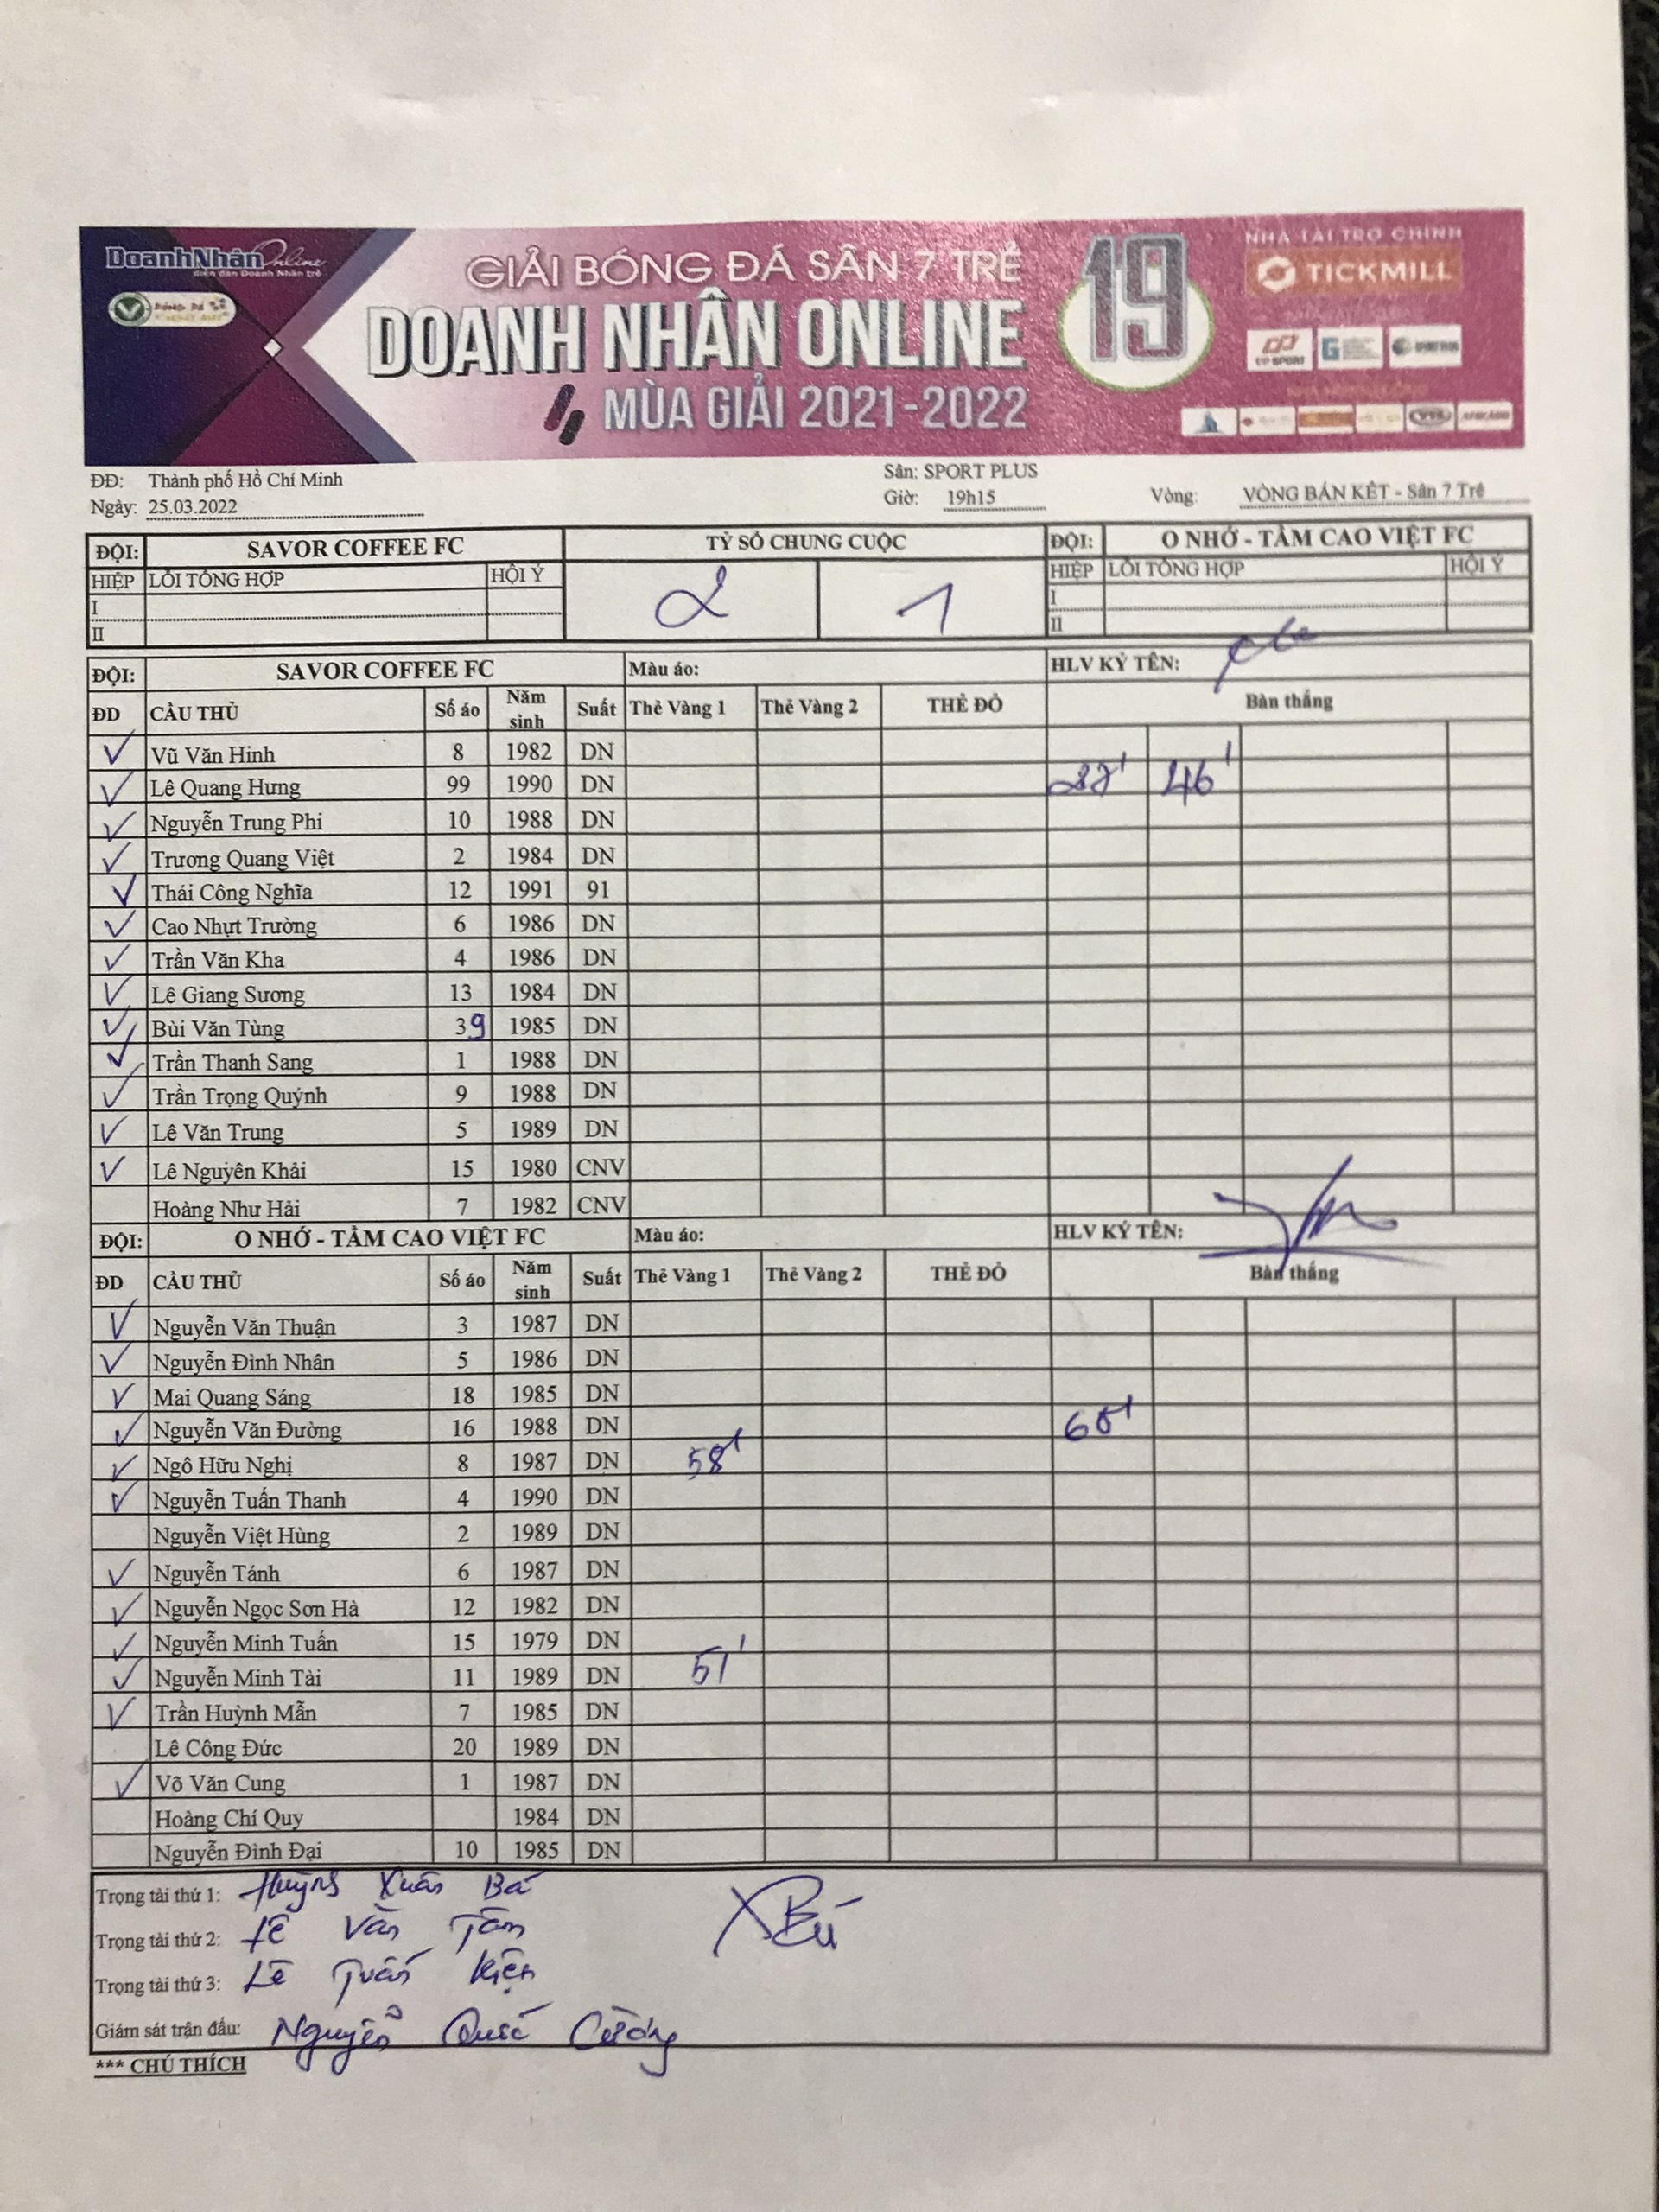 DoanhNhân Online
diễn đàn Doanh Nhân trẻ
GIẢI BÓNG ĐÁ SÂN 7 TRẺ
DOANH NHÂN ONLINE
MÙA GIẢI 2021-2022
19
NHÀ TÀI TRỢ CHÍNH
TICKMILL
ĐĐ: Thành phố Hồ Chí Minh Sân: SPORT PLUS
Ngày: 25.03.2022 Giờ: 19h15 Vòng: VÒNG BÁN KẾT - Sân 7 Trẻ
ĐỘI: SAVOR COFFEE FC TỶ SỐ CHUNG CUỘC ĐỘI: O NHỚ - TẦM CAO VIỆT FC
HIỆP LỖI TỔNG HỢP HỘI Ý 2 1 HIỆP LỖI TỔNG HỢP HỘI Ý
I I
II II
ĐỘI: SAVOR COFFEE FC Màu áo: HLV KÝ TÊN:
ĐD CẦU THỦ Số áo Năm sinh Suất Thẻ Vàng 1 Thẻ Vàng 2 THẺ ĐỎ Bàn thắng
Vũ Văn Hinh 8 1982 DN
Lê Quang Hưng 99 1990 DN 46'
Nguyễn Trung Phi 10 1988 DN
Trương Quang Việt 2 1984 DN
Thái Công Nghĩa 12 1991 91
Cao Nhựt Trường 6 1986 DN
Trần Văn Kha 4 1986 DN
Lê Giang Sương 13 1984 DN
Bùi Văn Tùng 39 1985 DN
Trần Thanh Sang 1 1988 DN
Trần Trọng Quýnh 9 1988 DN
Lê Văn Trung 5 1989 DN
Lê Nguyên Khải 15 1980 CNV
Hoàng Như Hải 7 1982 CNV
ĐỘI: O NHỚ - TẦM CAO VIỆT FC Màu áo: HLV KÝ TÊN:
ĐD CẦU THỦ Số áo Năm sinh Suất Thẻ Vàng 1 Thẻ Vàng 2 THẺ ĐỎ Bàn thắng
Nguyễn Văn Thuận 3 1987 DN
Nguyễn Đình Nhân 5 1986 DN
Mai Quang Sáng 18 1985 DN
Nguyễn Văn Đường 16 1988 DN
Ngô Hữu Nghị 8 1987 DN 58'
Nguyễn Tuấn Thanh 4 1990 DN
Nguyễn Việt Hùng 2 1989 DN
Nguyễn Tánh 6 1987 DN
Nguyễn Ngọc Sơn Hà 12 1982 DN
Nguyễn Minh Tuấn 15 1979 DN
Nguyễn Minh Tài 11 1989 DN 51'
Trần Huỳnh Mẫn 7 1985 DN
Lê Công Đức 20 1989 DN
Võ Văn Cung 1 1987 DN
Hoàng Chí Quy 1984 DN
Nguyễn Đình Đại 10 1985 DN
Trọng tài thứ 1: Huỳnh Xuân Bá
Trọng tài thứ 2: Lê Văn Tâm
Trọng tài thứ 3: Lê Tuấn Kiện
Giám sát trận đấu: Nguyễn Quốc Cường
*** CHÚ THÍCH